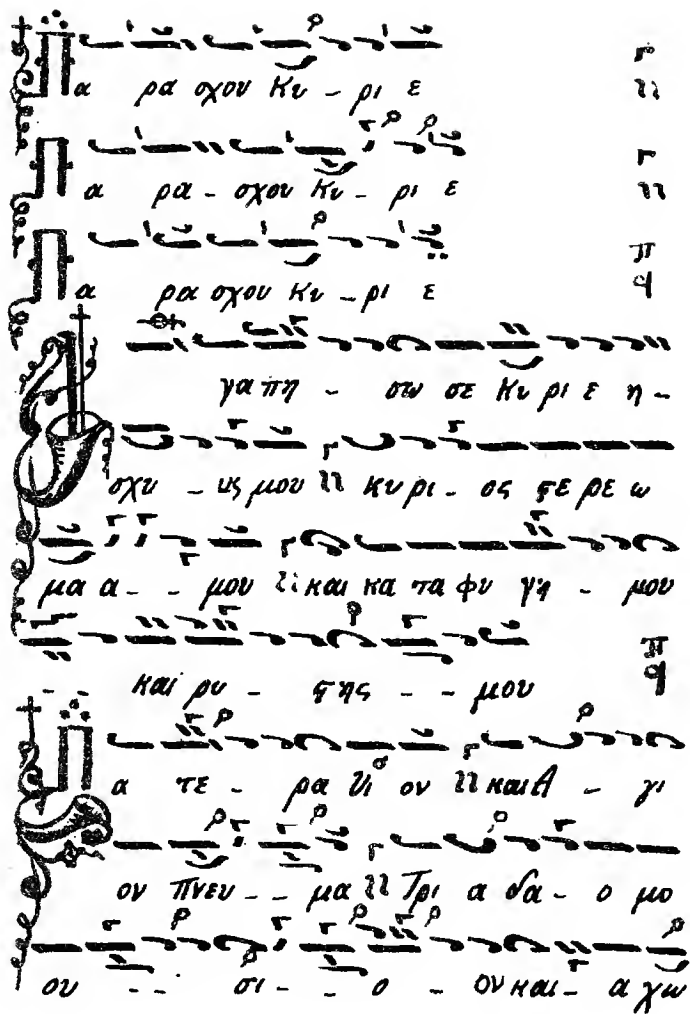 Πα ρα σχου Κυ - ρι ε
Πα ρα - σχου Κυ - ρι ε
Πα ρα σχου Κυ - ρι ε
γα πη - σω σε Κυ ρι ε η -
σχυ - υς μου κυ ρι - ος ςε ρε ω
μα α - - μου και κα τα φυ γη - μου
και ρυ - ςης - - μου
Πα τε - ρα Υι ον και Α - γι
ον Πνευ - - μα Τρι α δα - ο μο
ου - - σι - - ο - ον και - α χω